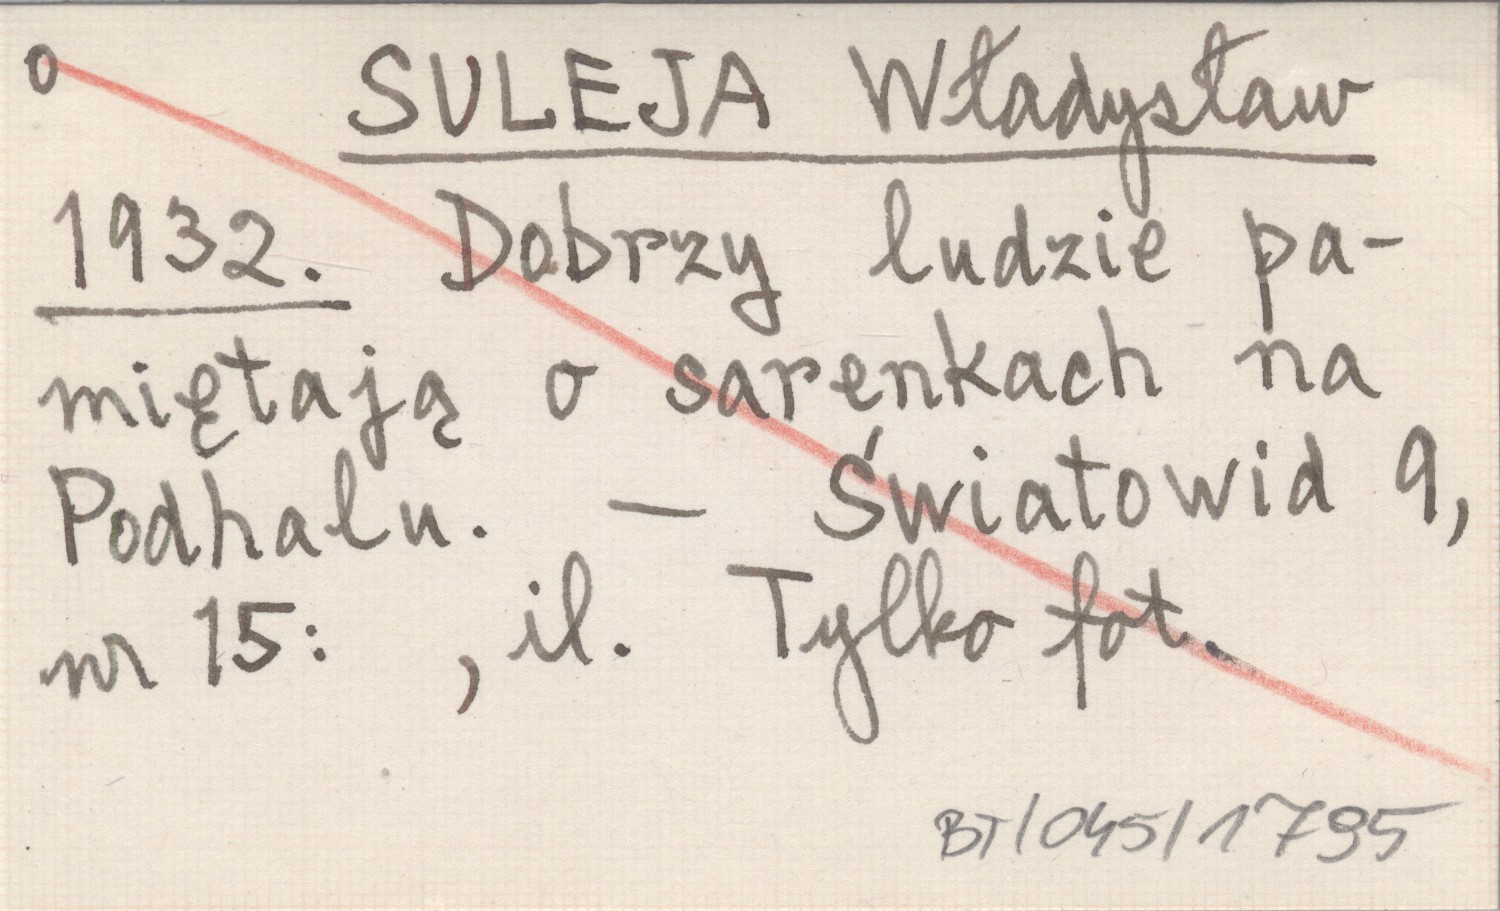 o SULEJA Władysław
1932. Dobrzy ludzie pa-
miętają o sarenkach na
Podhalu. — Światowid 9,
nr 15: , il. Tylko fot.
BT/045/1795